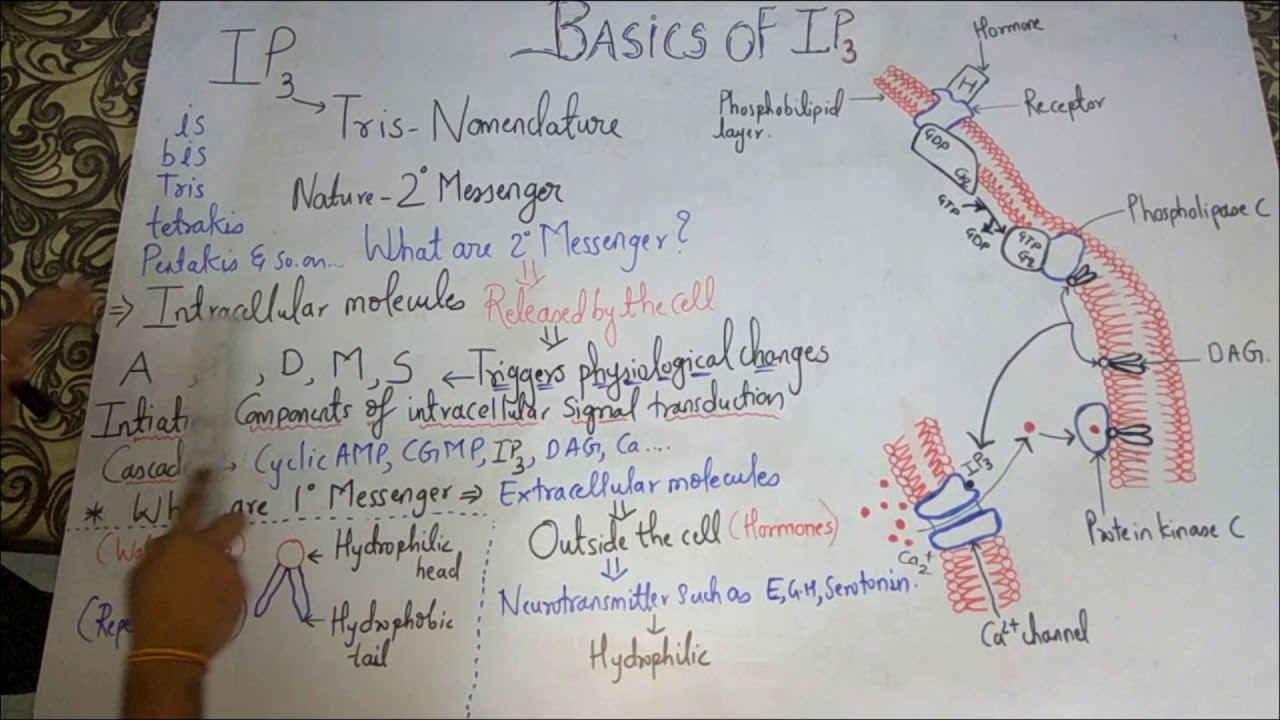 BASICS OF IP3
IP3
Tris-Nomenclature
is
bis
Tris
tetrakis
Pentakis & so.on....
Nature - 2° Messenger
What are 2° Messenger?
⇒ Intracellular molecules Released by the cell
A , D, M, S ← Triggers physiological changes
Components of intracellular signal transduction
Cyclic AMP, CGMP, IP3, DAG, Ca....
* are 1° Messenger ⇒ Extracellular molecules
Outside the cell (Hormones)
Neurotransmitter such as E, GH, Serotonin.
Hydrophilic
Hydrophilic
head
Hydrophobic
tail
Hormone
H
Phosphobilipid
layer.
Receptor
GDP
GTP
GDP
GTP
Phospholipase C
DAG.
IP3
Protein kinase C
Ca2+
Ca2+ channel